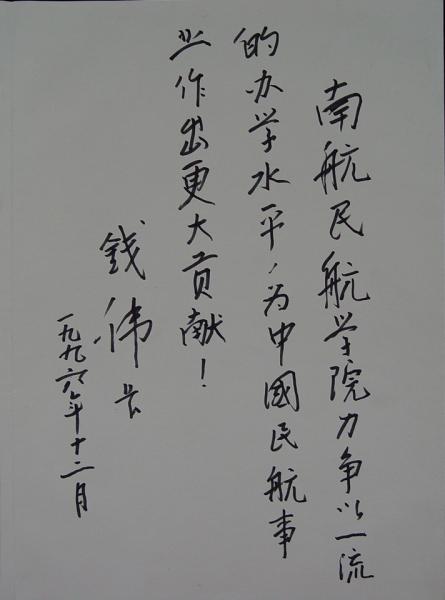 南航民航学院力争以一流
的办学水平，为中國民航事
业作出更大贡献！
錢伟长
一九九六年十二月